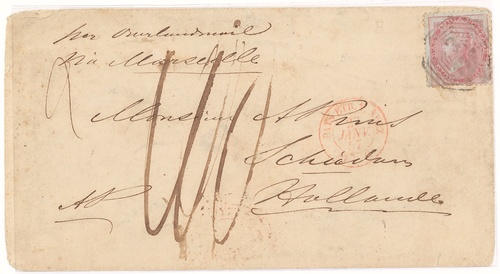 per Overlandmail
via Marseille
Monsieur A Prins
Schiedam
Hollande
AP